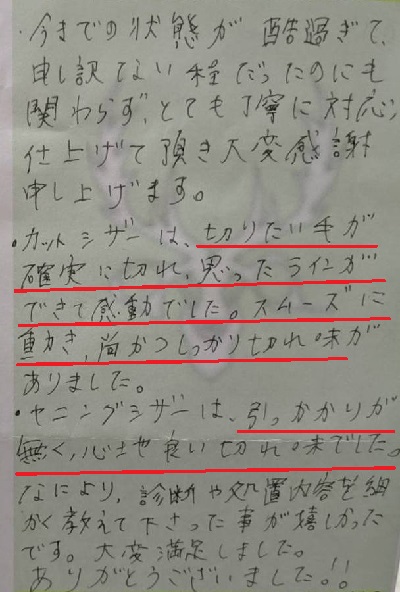 ・今までの状態が酷過ぎて、
申し訳ない程だったのにも
関わらず、とても丁寧に対応、
仕上げて頂き大変感謝
申し上げます。
・カットシザーは、切りたい毛が
確実に切れ、思ったラインが
できて感動でした。スムーズに
動き、尚かつしっかり切れ味が
ありました。
・セニングシザーは、引っかかりが
無く、心地良い切れ味でした。
なにより、診断や処置内容を細
かく教えて下さった事が嬉しかった
です。大変満足しました。
ありがとうございました!!